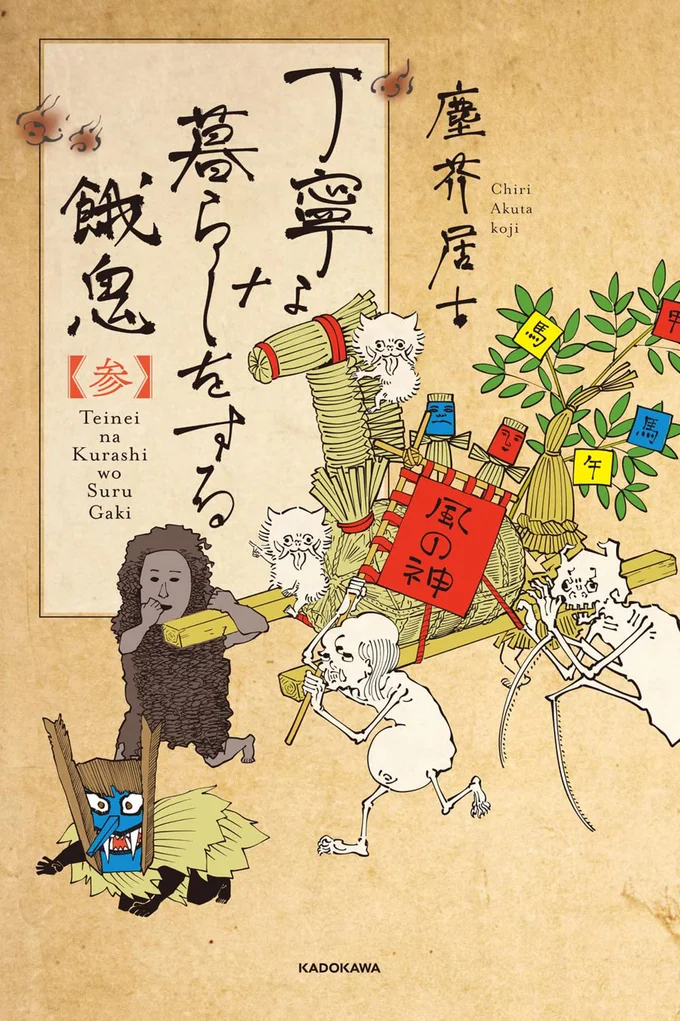 丁寧な
暮らしをする
餓鬼
【参】
Teinei
na
Kurashi
wo
Suru
Gaki
塵芥居士
Chiri
Akuta
koji
馬
甲
馬
午
風の神
KADOKAWA